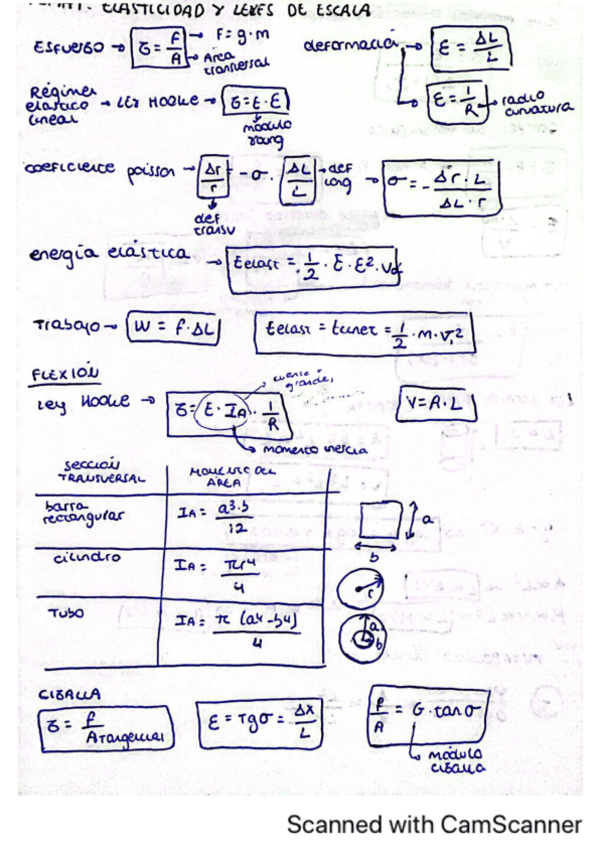 ELASTICIDAD Y LEYES DE ESCALA
ESFUERSO → σ = F/A → F = g·m
→ Área transversal
deformació → ε = ΔL/L
→ ε = 1/R → radio curvatura
Régimen elástico lineal → LEY HOOKE → σ = E·ε
módulo Young
coeficiente poisson → Δr/r = -σ · ΔL/L → def long → σ = - Δr·L / ΔL·r
def transv
energía elástica → Eelast = 1/2 · E · ε² · Vol
Trabajo → W = F·ΔL
Eelast = Ecinet = 1/2 · m · v²
FLEXIÓN
Ley HOOKE → σ = E · IA · 1/R
grande
momento inercia
V = A·L
SECCIÓN TRANSVERSAL
MOMENTO DEL ÁREA
barra rectangular
IA = a³·b/12
a
b
cilindro
IA = πr⁴/4
r
TUBO
IA = π (a⁴-b⁴)/4
a
b
CIZALLA
σ = F/Atangencial
ε = Tgσ = Δx/L
F/A = G·tanσ
módulo cizalla
Scanned with CamScanner